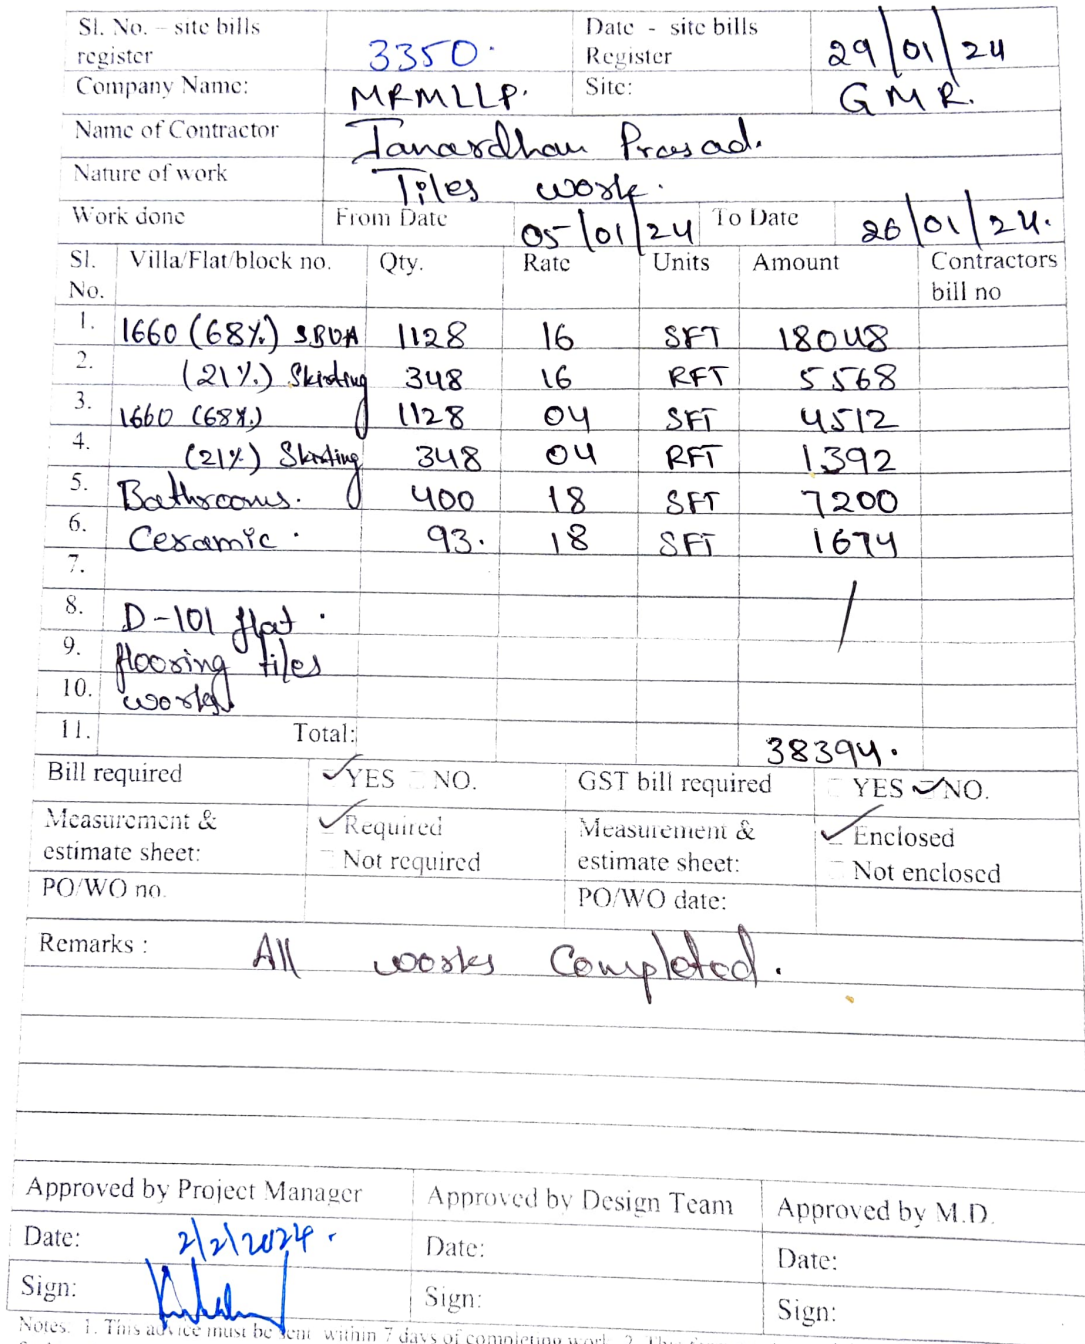 Sl. No. – site bills register 3350. Date - site bills Register 29/01/24
Company Name: MRMLLP. Site: GMR.
Name of Contractor Janardhan Prasad.
Nature of work Tiles work.
Work done From Date 05/01/24 To Date 26/01/24.
Sl. No. Villa/Flat/block no. Qty. Rate Units Amount Contractors bill no
1. 1660 (68%) SBUA 1128 16 SFT 18048
2. (21%.) Skirting 348 16 RFT 5568
3. 1660 (68%) 1128 04 SFT 4512
4. (21%) Skirting 348 04 RFT 1392
5. Bathrooms. 400 18 SFT 7200
6. Ceramic. 93. 18 SFT 1674
7.
8. D-101 flat.
9. flooring tiles
10. works
11. Total: 38394.
Bill required YES NO. GST bill required YES NO.
Measurement & estimate sheet: Required Not required Measurement & estimate sheet: Enclosed Not enclosed
PO/WO no. PO/WO date:
Remarks : All works Completed.
Approved by Project Manager Approved by Design Team Approved by M.D.
Date: 2/2/2024. Date: Date:
Sign: Sign: Sign:
Notes: 1. This advice must be sent within 7 days of completing work. 2. This